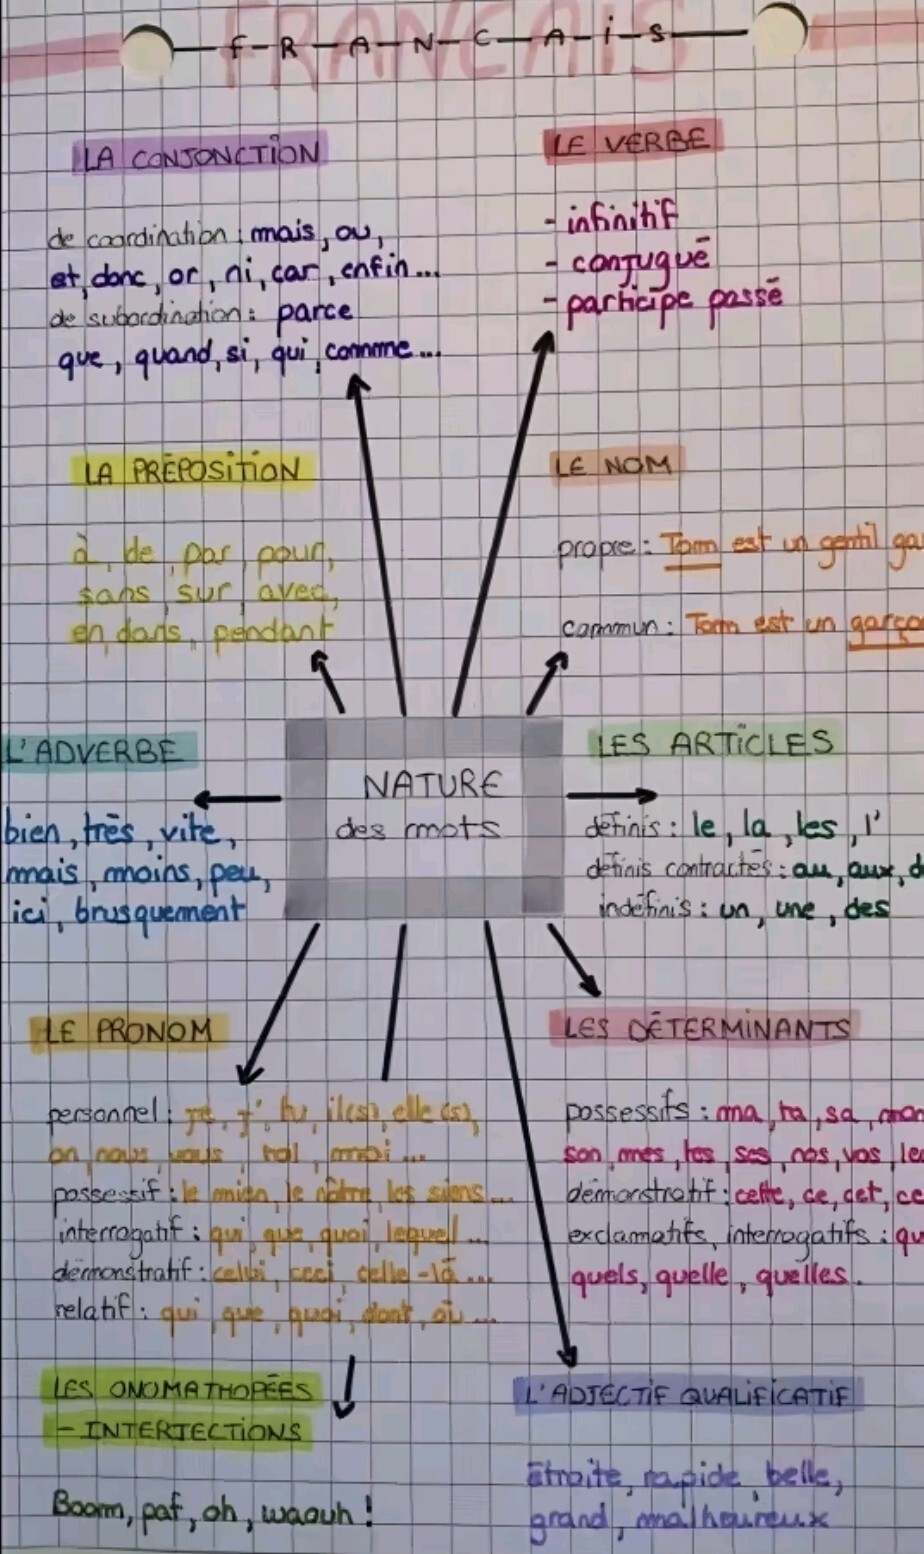 FRANCAIS
F-R-A-N-C-A-i-S
LA CONJONCTION
de coordination : mais, ou,
et, donc, or, ni, car, enfin...
de subordination : parce
que, quand, si, qui, comme...
LE VERBE
- infinitif
- conjugué
- participe passé
LA PRÉPOSITION
à, de, par, pour,
sans, sur, avec,
en, dans, pendant
LE NOM
propre : Tom est un gentil ga
commun : Tom est un garço
L'ADVERBE
bien, très, vite,
mais, moins, peu,
ici, brusquement
NATURE
des mots
LES ARTiCLES
définis : le, la, les, l'
définis contractés : au, aux, d
indéfinis : un, une, des
LE PRONOM
personnel : je, j', tu, il(s), elle(s),
on, nous, vous, toi, moi...
possessif : le mien, le nôtre, les siens...
interrogatif : qui, que, quoi, lequel...
démonstratif : celui, ceci, celle-là...
relatif : qui, que, quoi, dont, où...
LES DÉTERMINANTS
possessifs : ma, ta, sa, mon
son, mes, tes, ses, nos, vos, leu
démonstratif : cette, ce, cet, ce
exclamatifs, interrogatifs : qu
quels, quelle, quelles.
LES ONOMATHOPÉES
- INTERJECTIONS
Boom, paf, oh, waouh !
L'ADJECTIF QUALIFICATIF
Étroite, rapide, belle,
grand, malheureux